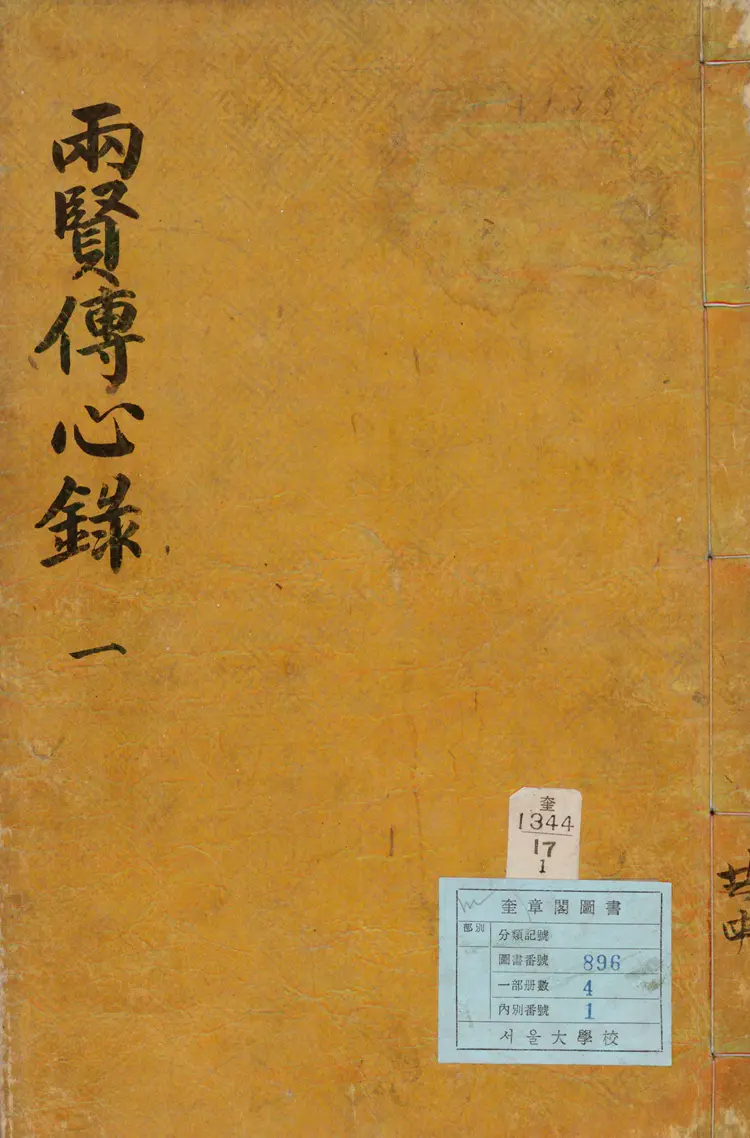 兩賢傳心錄 一
奎
1344
17
1
奎章閣圖書
部別
分類記號
圖書番號 896
一部册數 4
內別番號 1
서울大學校